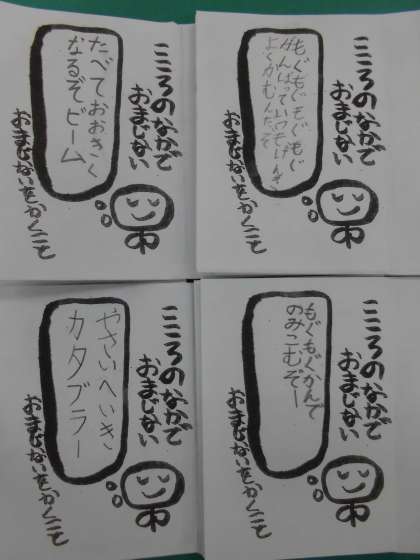 こころのなかで
おまじない
もぐもぐもぐもぐ
がんばって
よくかむんだぞ
おまじないをかくこと
こころのなかで
おまじない
たべておおきく
なるぞビーム
おまじないをかくこと
こころのなかで
おまじない
もぐもぐかんで
のみこむぞー
おまじないをかくこと
こころのなかで
おまじない
やさいへいき
カタブラー
おまじないをかくこと